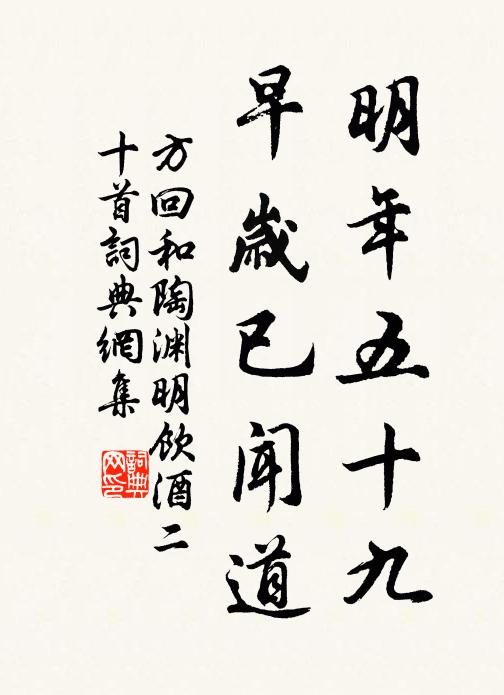 明年五十九
早歲已聞道
方回和陶淵明飲酒二
十首詞典網集
詞典
网印